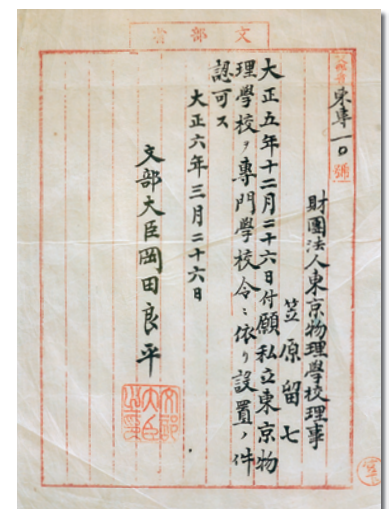 文部省
文部省東専一〇號
財團法人東京物理學校理事
笠原留七
大正五年十二月二十六日付願私立東京物
理學校ヲ専門學校令ニ依リ設置ノ件
認可ス
大正六年三月二十六日
文部大臣岡田良平
文部大臣之印